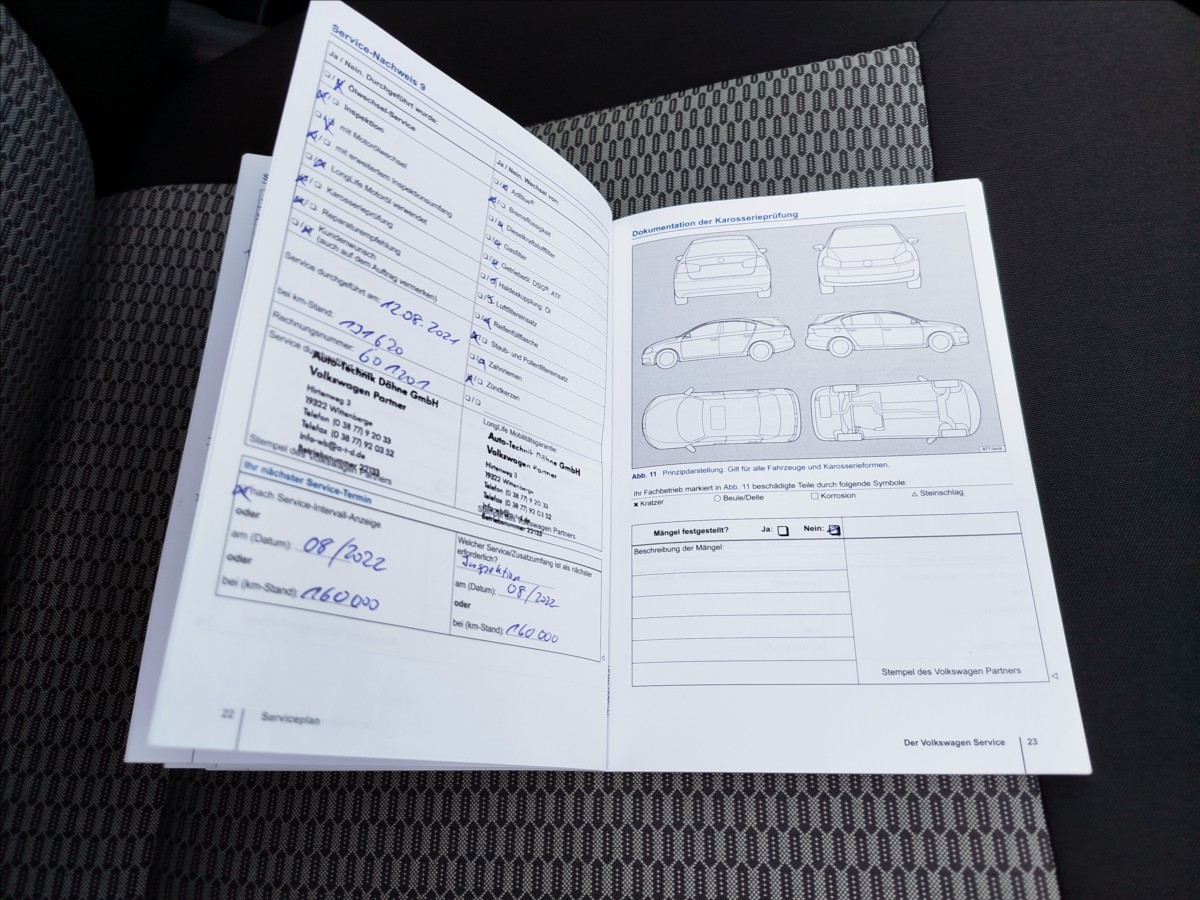 Service-Nachweis 9
Ja / Nein. Durchgeführt wurde:
Ölwechsel-Service
Inspektion
mit Motorölwechsel
mit erweitertem Inspektionsumfang
LongLife Motoröl verwendet
Karosserieprüfung
Reparaturempfehlung
Kundenwunsch
(auch auf dem Auftrag vermerken)
Service durchgeführt am: 12.08.2021
bei km-Stand: 131620
Rechnungsnummer: 601201
Auto-Technik Dähne GmbH
Volkswagen Partner
Hirtenweg 3
19322 Wittenberge
Telefon (0 38 77) 9 20 33
Telefax (0 38 77) 92 03 52
info-wb@a-t-d.de
Betriebsnummer 22133
Stempel des Volkswagen Partners
Ja / Nein. Wechsel von:
AdBlue®
Bremsflüssigkeit
Dieselkraftstofffilter
Gasfilter
Getriebeöl: DSG®, ATF
Haldexkupplung: Öl
Luftfiltereinsatz
Reifenfüllflasche
Staub- und Pollenfiltereinsatz
Zahnriemen
Zündkerzen
LongLife Mobilitätsgarantie:
Auto-Technik Dähne GmbH
Volkswagen Partner
Hirtenweg 3
19322 Wittenberge
Telefon (0 38 77) 9 20 33
Telefax (0 38 77) 92 03 52
info-wb@a-t-d.de
Betriebsnummer 22133
Stempel des Volkswagen Partners
Ihr nächster Service-Termin
nach Service-Intervall-Anzeige
oder
am (Datum): 08/2022
oder
bei (km-Stand): 160000
Welcher Service/Zusatzumfang ist als nächster
erforderlich?
Inspektion
am (Datum): 08/2022
oder
bei (km-Stand): 160 000
22 Serviceplan
Dokumentation der Karosserieprüfung
Abb. 11 Prinzipdarstellung. Gilt für alle Fahrzeuge und Karosserieformen.
Ihr Fachbetrieb markiert in Abb. 11 beschädigte Teile durch folgende Symbole:
Kratzer Beule/Delle Korrosion Steinschlag
Mängel festgestellt? Ja: Nein:
Beschreibung der Mängel:
Stempel des Volkswagen Partners
Der Volkswagen Service 23